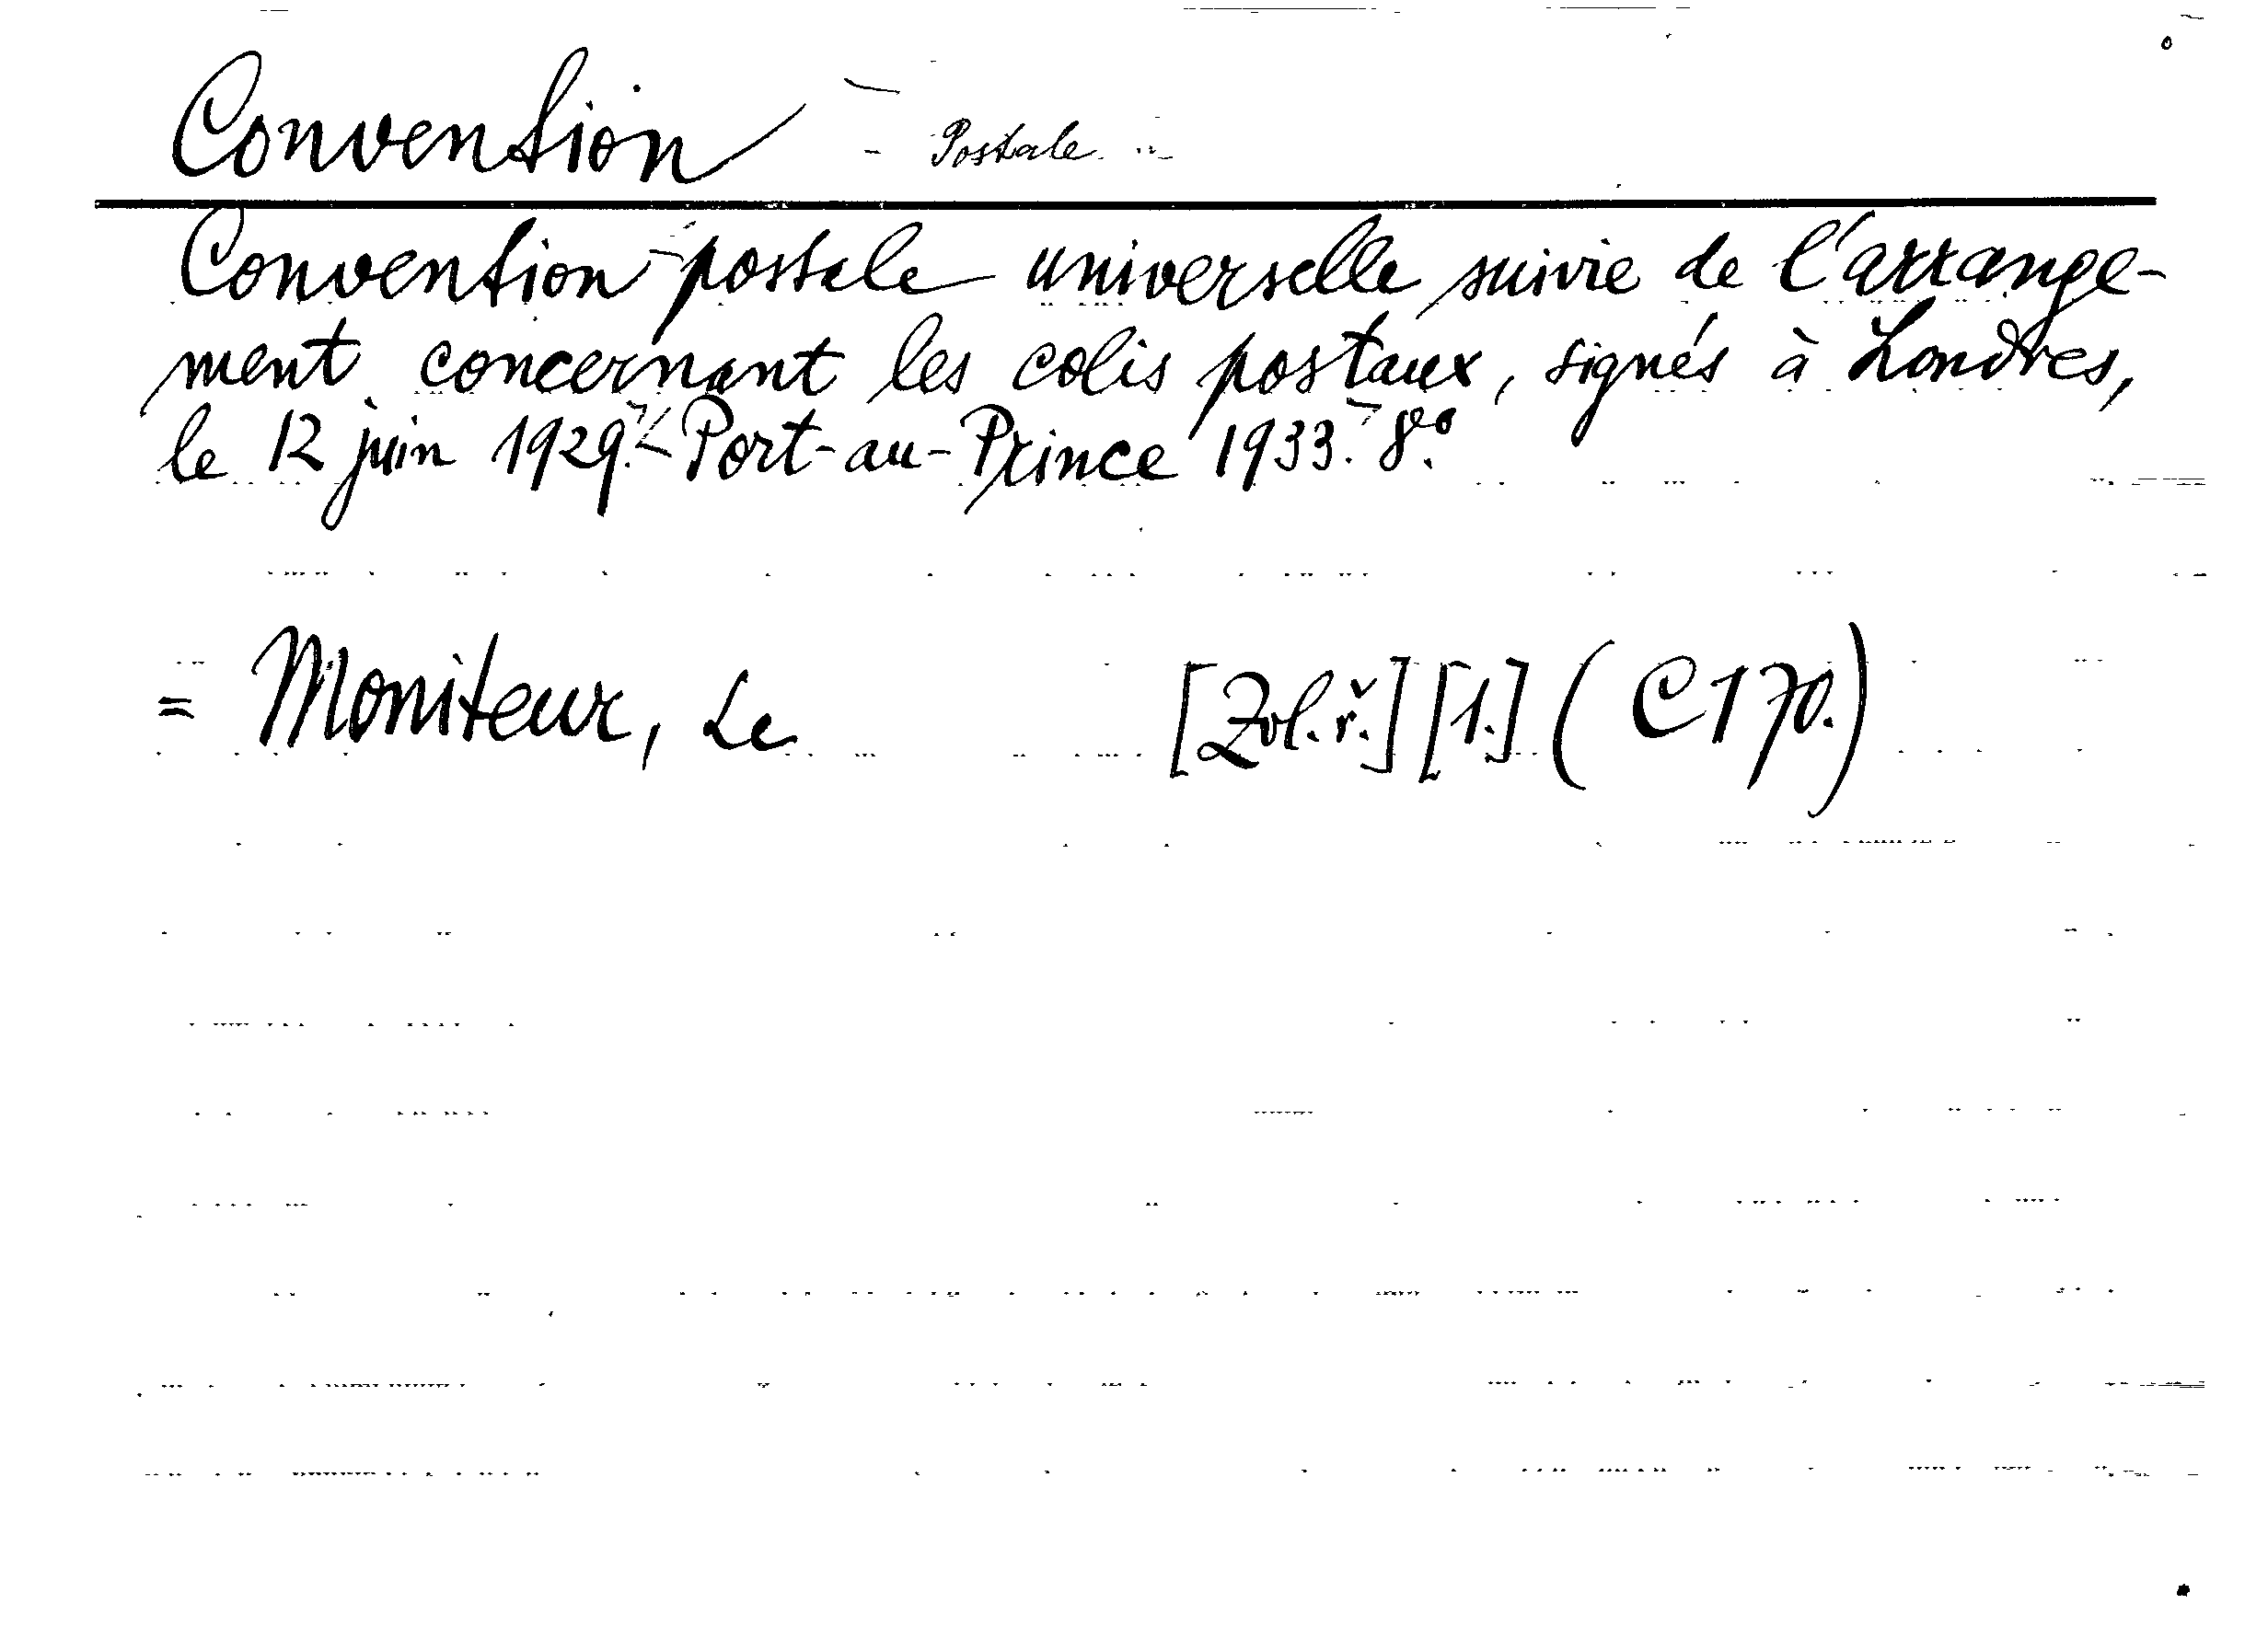 Convention - Postale
Convention postale universelle suivie de l'arrange-
ment concernant les colis postaux, signés à Londres,
le 12 juin 1929. - Port-au-Prince 1933. 8°.
= Moniteur, Le [Zvl.ř.] [1.] (C170.)